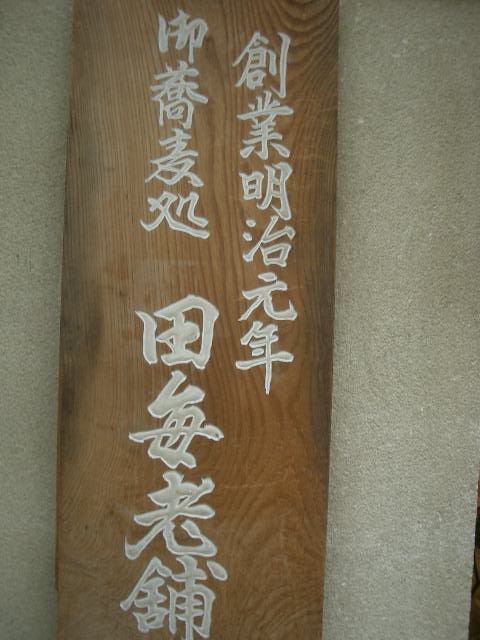 創業明治元年
御蕎麦処 田毎老舗